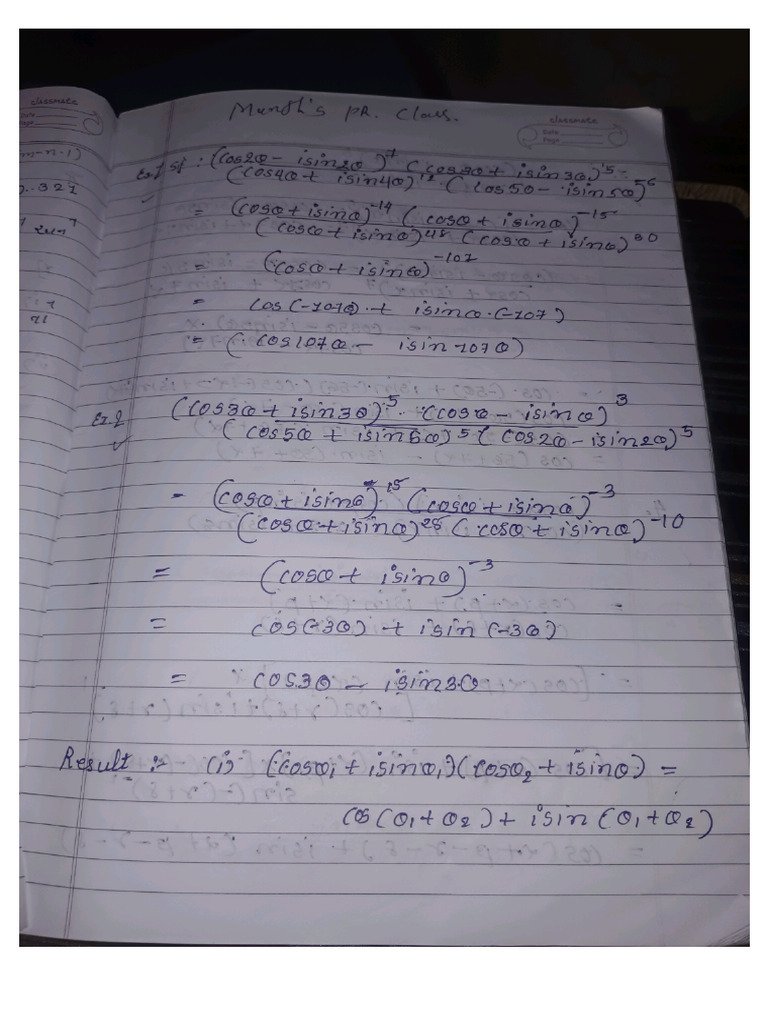 classmate
Date
Page
m-n-1)
classmate
Date
Page
Month's PR. Class.
Ex.1 Sf : (cos2θ - isin2θ)^7 (cos3θ + isin3θ)^-5
(cos4θ + isin4θ)^12 (cos5θ - isin5θ)^-6
= (cosθ + isinθ)^-14 (cosθ + isinθ)^-15
(cosθ + isinθ)^48 (cosθ + isinθ)^30
= (cosθ + isinθ)^-107
= cos(-107θ) + isinθ.(-107)
= (cos107θ - isin107θ)
Ex.2 (cos3θ + isin3θ)^5 . (cosθ - isinθ)^3
(cos5θ + isin5θ)^5 (cos2θ - isin2θ)^5
= (cosθ + isinθ)^15 (cosθ + isinθ)^-3
(cosθ + isinθ)^25 (cosθ + isinθ)^-10
= (cosθ + isinθ)^-3
= cos(-3θ) + isin(-3θ)
= cos3θ - isin3θ
Result :- (i) (cosθ₁ + isinθ₁)(cosθ₂ + isinθ) =
cos(θ₁ + θ₂) + isin(θ₁ + θ₂)